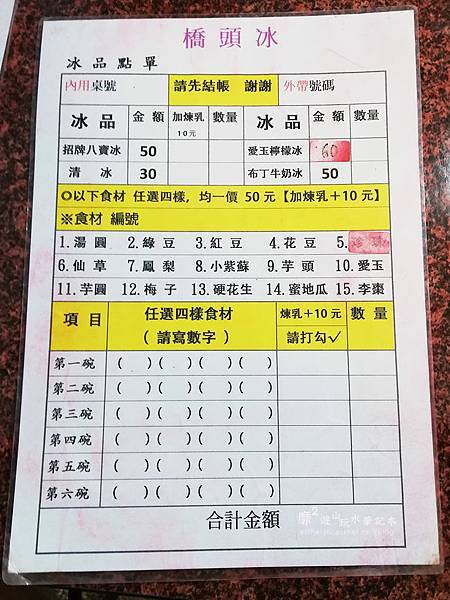 橋頭冰
冰品點單
內用桌號 請先結帳 謝謝 外帶號碼
冰品 金額 加煉乳10元 數量 冰品 金額 數量
招牌八寶冰 50 愛玉檸檬冰 60
清冰 30 布丁牛奶冰 50
◎以下食材 任選四樣，均一價 50 元【加煉乳＋10 元】
※食材 編號
1.湯圓 2.綠豆 3.紅豆 4.花豆 5.
6.仙草 7.鳳梨 8.小紫蘇 9.芋頭 10.愛玉
11.芋圓 12.梅子 13.硬花生 14.蜜地瓜 15.李棗
項目 任選四樣食材 煉乳＋10元 數量
（請寫數字） 請打勾✓
第一碗 ( ) ( ) ( ) ( )
第二碗 ( ) ( ) ( ) ( )
第三碗 ( ) ( ) ( ) ( )
第四碗 ( ) ( ) ( ) ( )
第五碗 ( ) ( ) ( ) ( )
第六碗 ( ) ( ) ( ) ( )
合計金額
遊山玩水筆記本